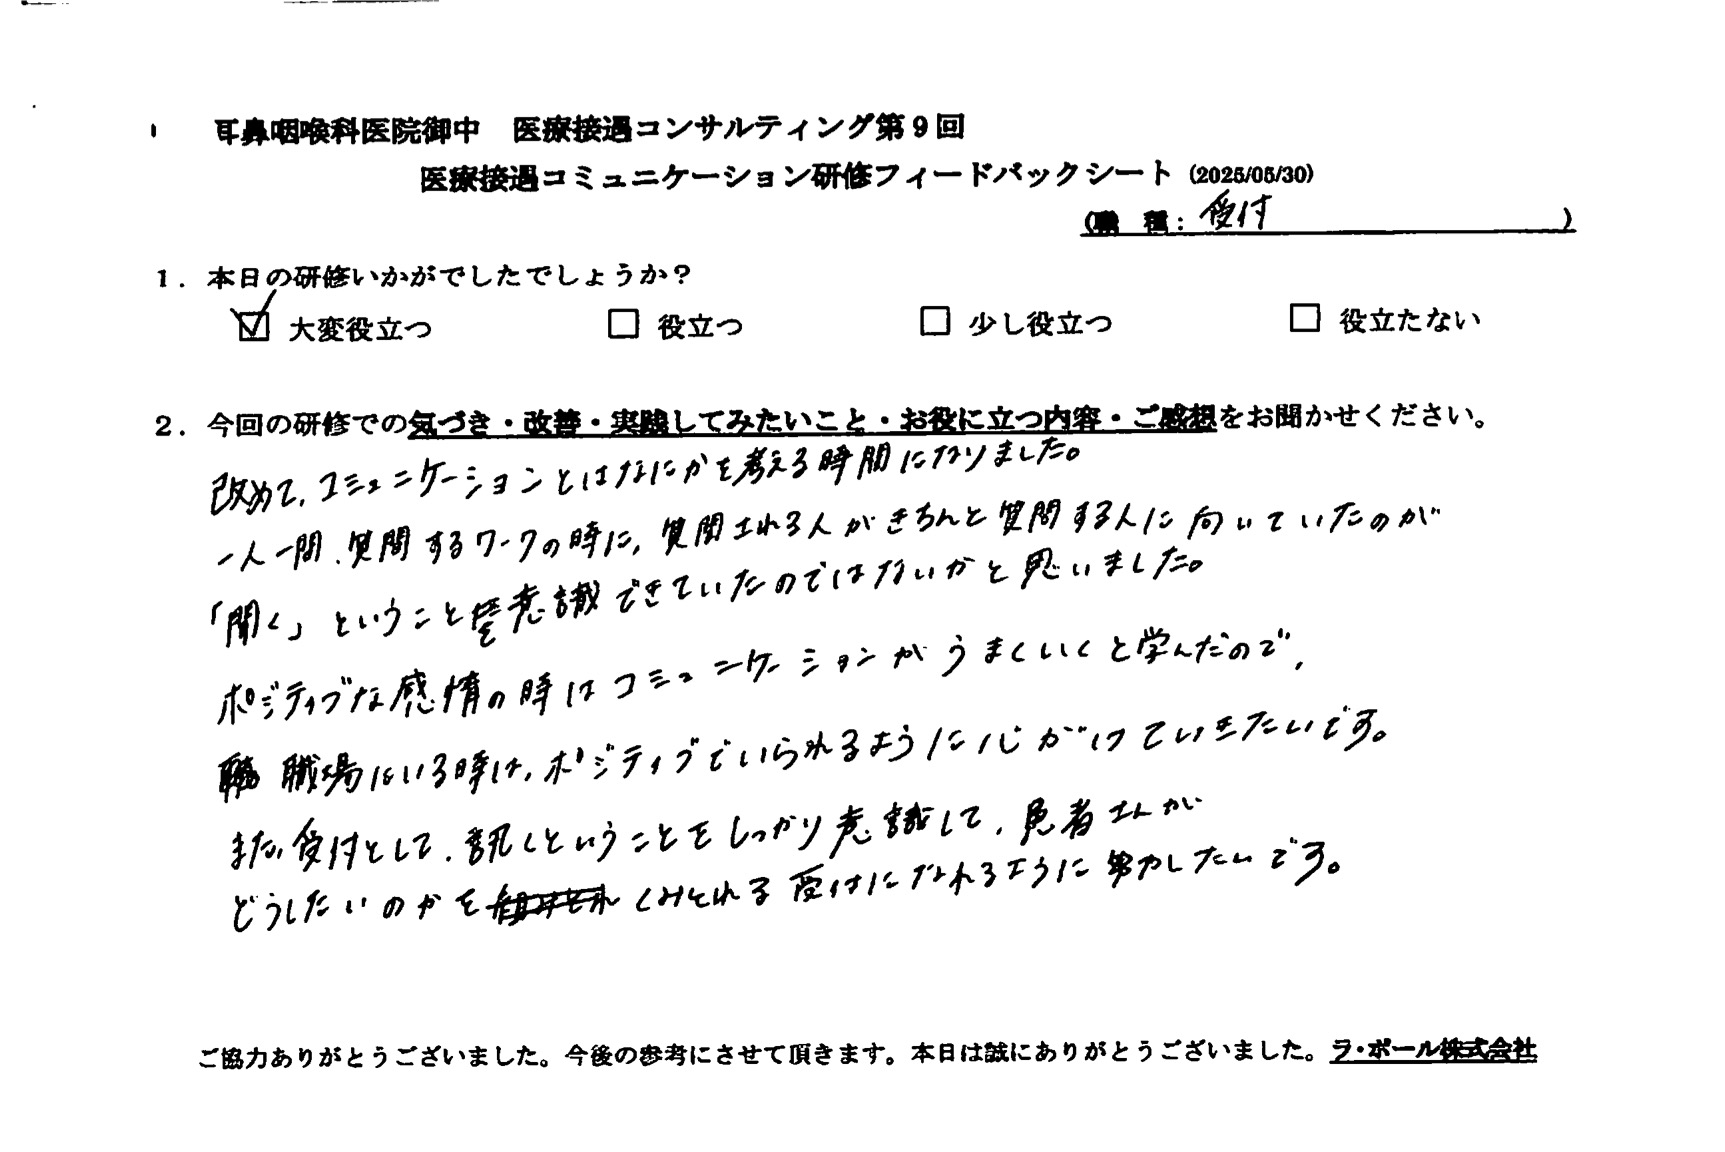 耳鼻咽喉科医院御中 医療接遇コンサルティング第9回
医療接遇コミュニケーション研修フィードバックシート (2025/05/30)
(職 種: 受付 )
1. 本日の研修いかがでしたでしょうか?
☑ 大変役立つ □ 役立つ □ 少し役立つ □ 役立たない
2. 今回の研修での気づき・改善・実践してみたいこと・お役に立つ内容・ご感想をお聞かせください。
改めて、コミュニケーションとはなにかを考える時間になりました。
一人一問、質問するワークの時に、質問される人がきちんと質問する人に向いていたのが
「聞く」ということを意識できていたのではないかと思いました。
ポジティブな感情の時はコミュニケーションがうまくいくと学んだので、
職場にいる時は、ポジティブでいられるように心がけていきたいです。
また、受付として、訊くということをしっかり意識して、患者さんが
どうしたいのかをくみとれる受付になれるように努力したいです。
ご協力ありがとうございました。今後の参考にさせて頂きます。本日は誠にありがとうございました。ラ・ポール株式会社